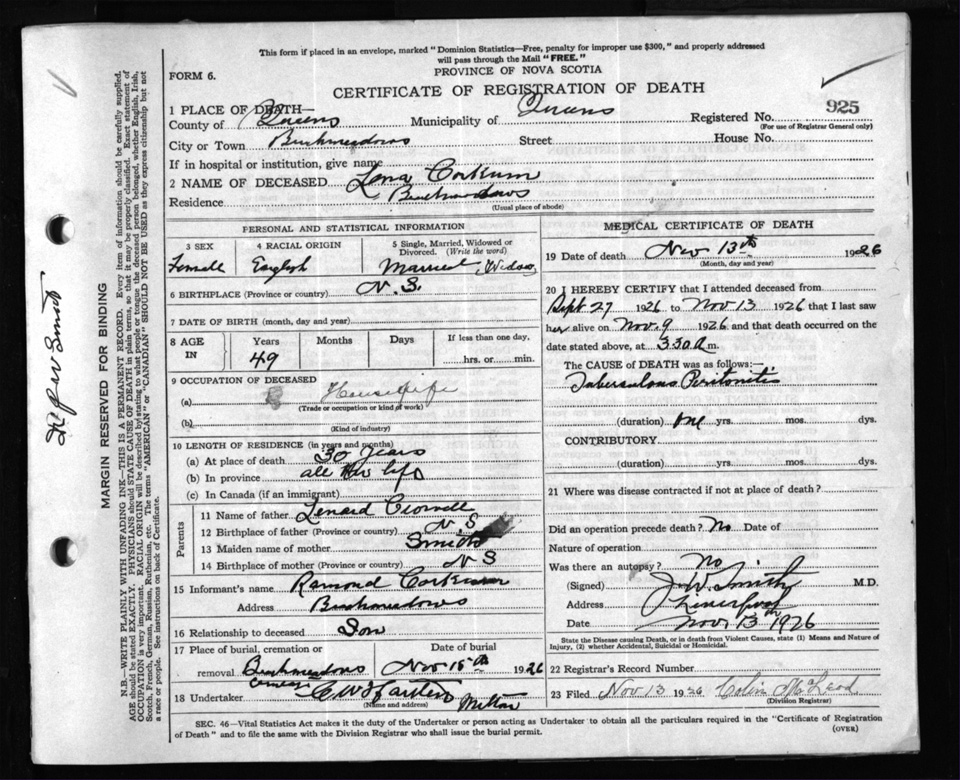 This form if placed in an envelope, marked "Dominion Statistics—Free, penalty for improper use $300," and properly addressed
will pass through the Mail "FREE."
FORM 6.
PROVINCE OF NOVA SCOTIA
CERTIFICATE OF REGISTRATION OF DEATH
925
1 PLACE OF DEATH—
County of Queens Municipality of Queens Registered No.
(For use of Registrar General only)
City or Town Street House No.
If in hospital or institution, give name
2 NAME OF DECEASED Lena Corkum
Residence
(Usual place of abode)
PERSONAL AND STATISTICAL INFORMATION
3 SEX 4 RACIAL ORIGIN 5 Single, Married, Widowed or Divorced. (Write the word)
Female English Married Widow
6 BIRTHPLACE (Province or country) N.S.
7 DATE OF BIRTH (month, day and year)
8 AGE IN Years Months Days If less than one day,
49 hrs. or min.
9 OCCUPATION OF DECEASED
(a) Housewife
(Trade or occupation or kind of work)
(b)
(Kind of industry)
10 LENGTH OF RESIDENCE (in years and months)
(a) At place of death 30 years
(b) In province all her life
(c) In Canada (if an immigrant)
Parents
11 Name of father Lenard
12 Birthplace of father (Province or country) N.S
13 Maiden name of mother Smith
14 Birthplace of mother (Province or country) N S
15 Informant's name Ramond Corkum
Address
16 Relationship to deceased Son
17 Place of burial, cremation or removal Date of burial
Nov 15th 1926
18 Undertaker Milton
(Name and address)
MEDICAL CERTIFICATE OF DEATH
19 Date of death Nov 13th 1926
(Month, day and year)
20 I HEREBY CERTIFY that I attended deceased from
Sept 27 1926 to Nov 13 1926 that I last saw
her alive on Nov. 9 1926 and that death occurred on
date stated above, at 3.30 a m.
The CAUSE of DEATH was as follows:—
Tuberculous Peritonitis
(duration) one yrs. mos. dys.
CONTRIBUTORY
(duration) yrs. mos. dys.
21 Where was disease contracted if not at place of death?
Did an operation precede death? No Date of
Nature of operation
Was there an autopsy? No
(Signed) J. W. Smith M.D.
Address Liverpool
Date Nov. 13th 1926
State the Disease causing Death, or in death from Violent Causes, state (1) Means and Nature of
Injury, (2) whether Accidental, Suicidal or Homicidal.
22 Registrar's Record Number
23 Filed Nov 13 1926 Colin McLeod
(Division Registrar)
SEC. 46—Vital Statistics Act makes it the duty of the Undertaker or person acting as Undertaker to obtain all the particulars required in the "Certificate of Registration
of Death" and to file the same with the Division Registrar who shall issue the burial permit.
(OVER)
MARGIN RESERVED FOR BINDING
N.B.—WRITE PLAINLY WITH UNFADING INK—THIS IS A PERMANENT RECORD. Every item of information should be carefully supplied.
AGE should be stated EXACTLY. PHYSICIANS should STATE CAUSE OF DEATH in plain terms, so that it may be properly classified. Exact statement of
OCCUPATION is very important. RACIAL ORIGIN will be described by stating to what people or tongue the deceased person belonged, whether English, Irish,
Scotch, French, German, Russian, Ruthenian, etc. The terms "AMERICAN" or "CANADIAN" SHOULD NOT BE USED as they express citizenship but not
a race or people. See instructions on back of Certificate.